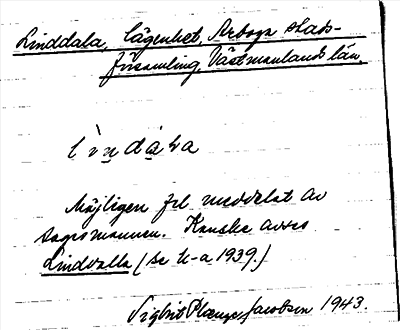 Linddala, lägenhet, Arboga stads-
församling, Västmanlands län.
lìndá̲la
Möjligen fel meddelat av
sagesmannen. Kanske avses
Lindvalla (se k-a 1939.)
Sigbrit Plænge Jacobson 1943.